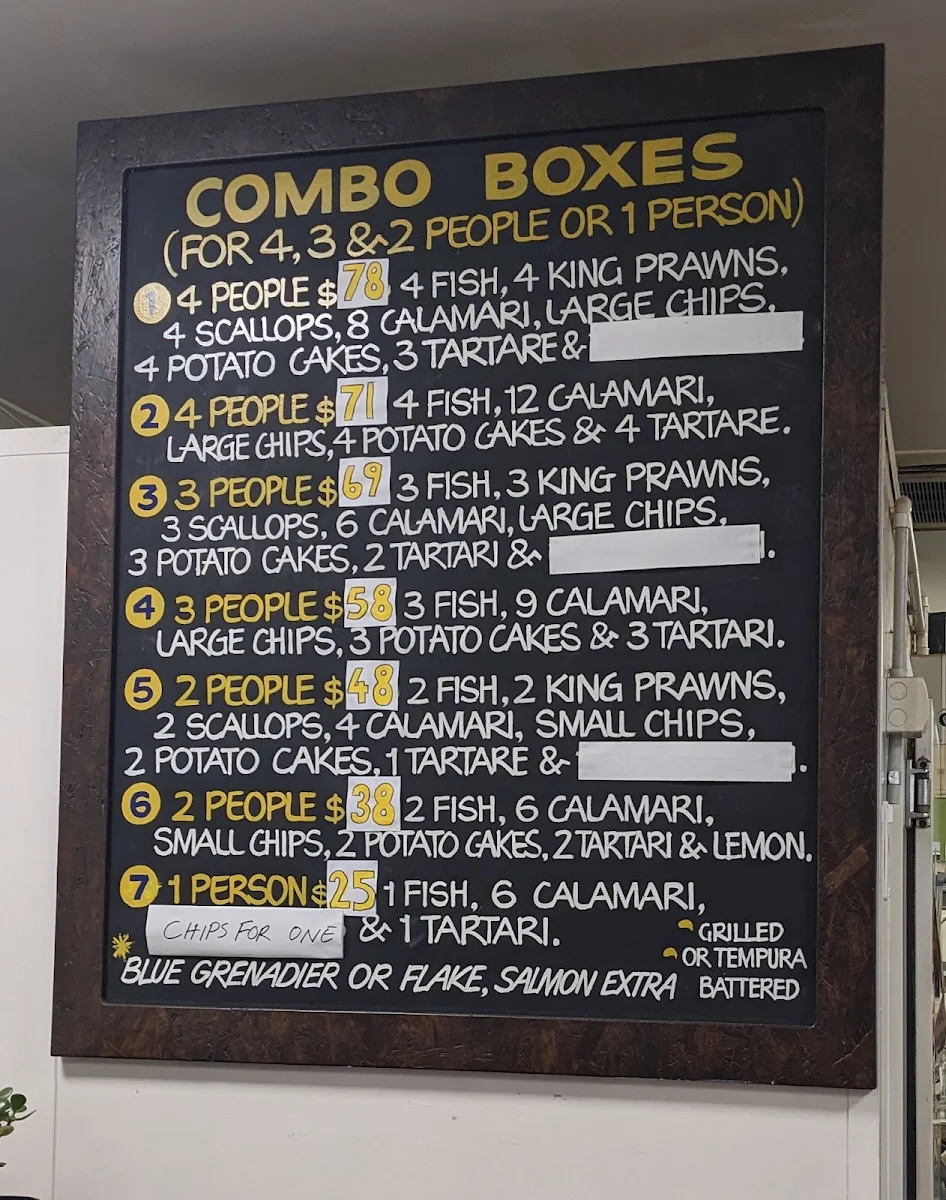 COMBO BOXES
(FOR 4, 3 & 2 PEOPLE OR 1 PERSON)
1 4 PEOPLE $78 4 FISH, 4 KING PRAWNS,
4 SCALLOPS, 8 CALAMARI, LARGE CHIPS,
4 POTATO CAKES, 3 TARTARE &
2 4 PEOPLE $71 4 FISH, 12 CALAMARI,
LARGE CHIPS, 4 POTATO CAKES & 4 TARTARE.
3 3 PEOPLE $69 3 FISH, 3 KING PRAWNS,
3 SCALLOPS, 6 CALAMARI, LARGE CHIPS,
3 POTATO CAKES, 2 TARTARI & .
4 3 PEOPLE $58 3 FISH, 9 CALAMARI,
LARGE CHIPS, 3 POTATO CAKES & 3 TARTARI.
5 2 PEOPLE $48 2 FISH, 2 KING PRAWNS,
2 SCALLOPS, 4 CALAMARI, SMALL CHIPS,
2 POTATO CAKES, 1 TARTARE & .
6 2 PEOPLE $38 2 FISH, 6 CALAMARI,
SMALL CHIPS, 2 POTATO CAKES, 2 TARTARI & LEMON.
7 1 PERSON $25 1 FISH, 6 CALAMARI,
CHIPS FOR ONE & 1 TARTARI.
GRILLED
OR TEMPURA
BATTERED
* BLUE GRENADIER OR FLAKE, SALMON EXTRA